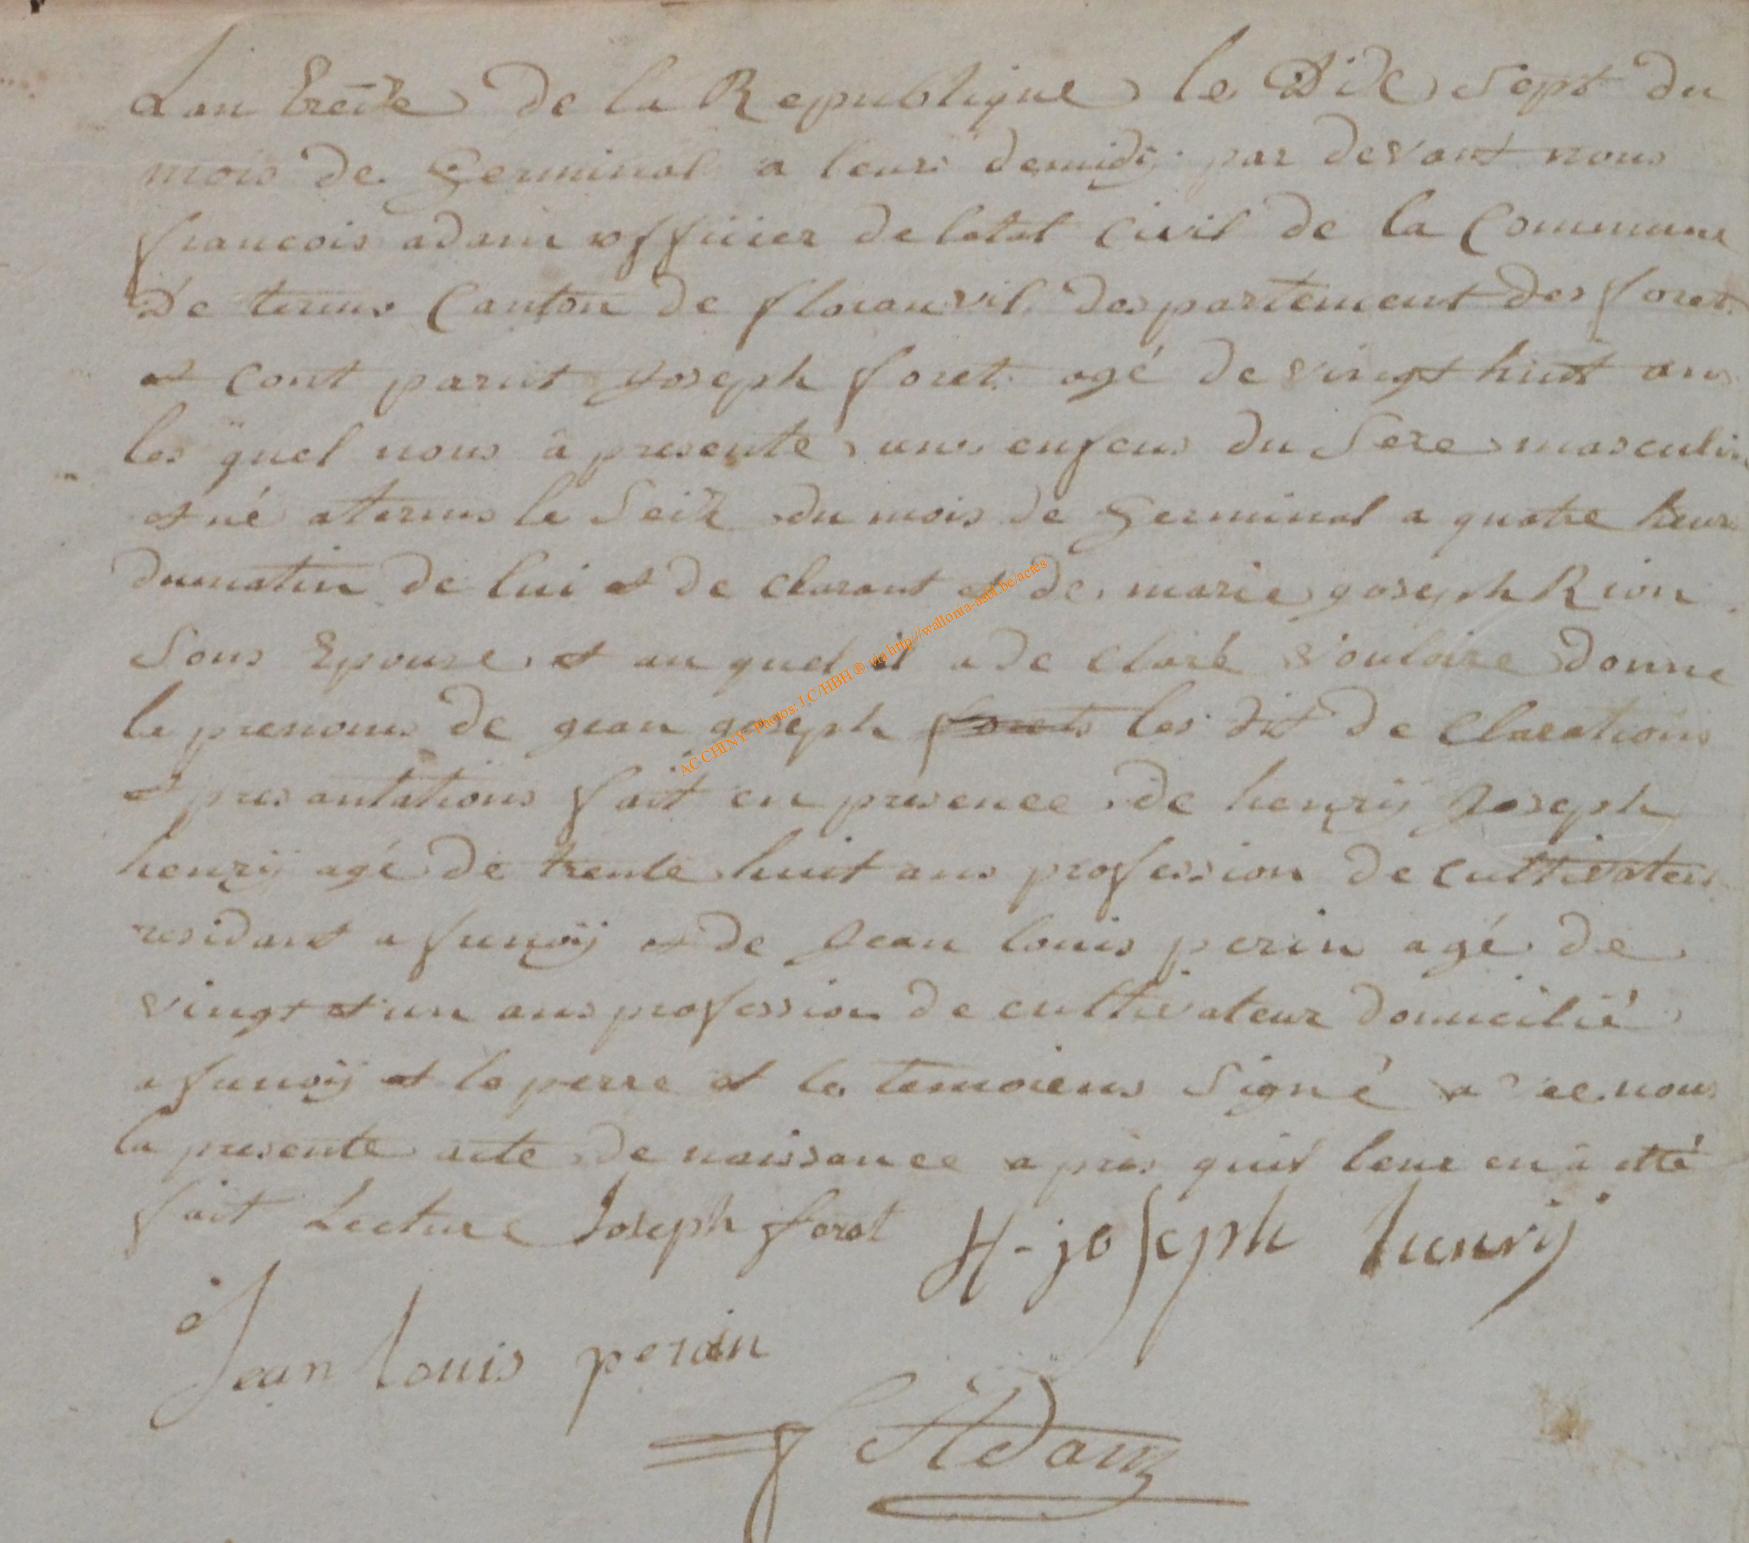 Lan treize de la Republique le Dix Sept du
mois de Germinal a leure demidy par devant nous
francois adam officier de letat Civil de la Commune
De termes Canton de floranvil despartement des foret
et cont parut Joseph foret agé de vingt huit ans
les quel nous à presente une enfens du Sexe masculin
et né a termes le Seize du mois de Germinal a quatre heure
du matin de lui et de clarant et de marie joseph Rion
Sons Epouse et au quel il a de claré vouloire donne
le prenoms de jean joseph forets les dit de Clarations
et presantations fait en presence de henrÿ Joseph
henrÿ agé de trente huit ans profession de cultivateur
residant a funoÿ et de Jean louis perin agé de
vingt et un ans profession de cultivateur domicilié
a funoÿ et le perre et les temoiens Signé avec nous
la presente acte de naissance apres quil leur en à etté
fait Lecture Joseph foret H-joseph henrÿ
Jean louis perin
f Adam
AG CHINY-Photos: J.C/HBH ® via http://wallonia-asbl.be/actes